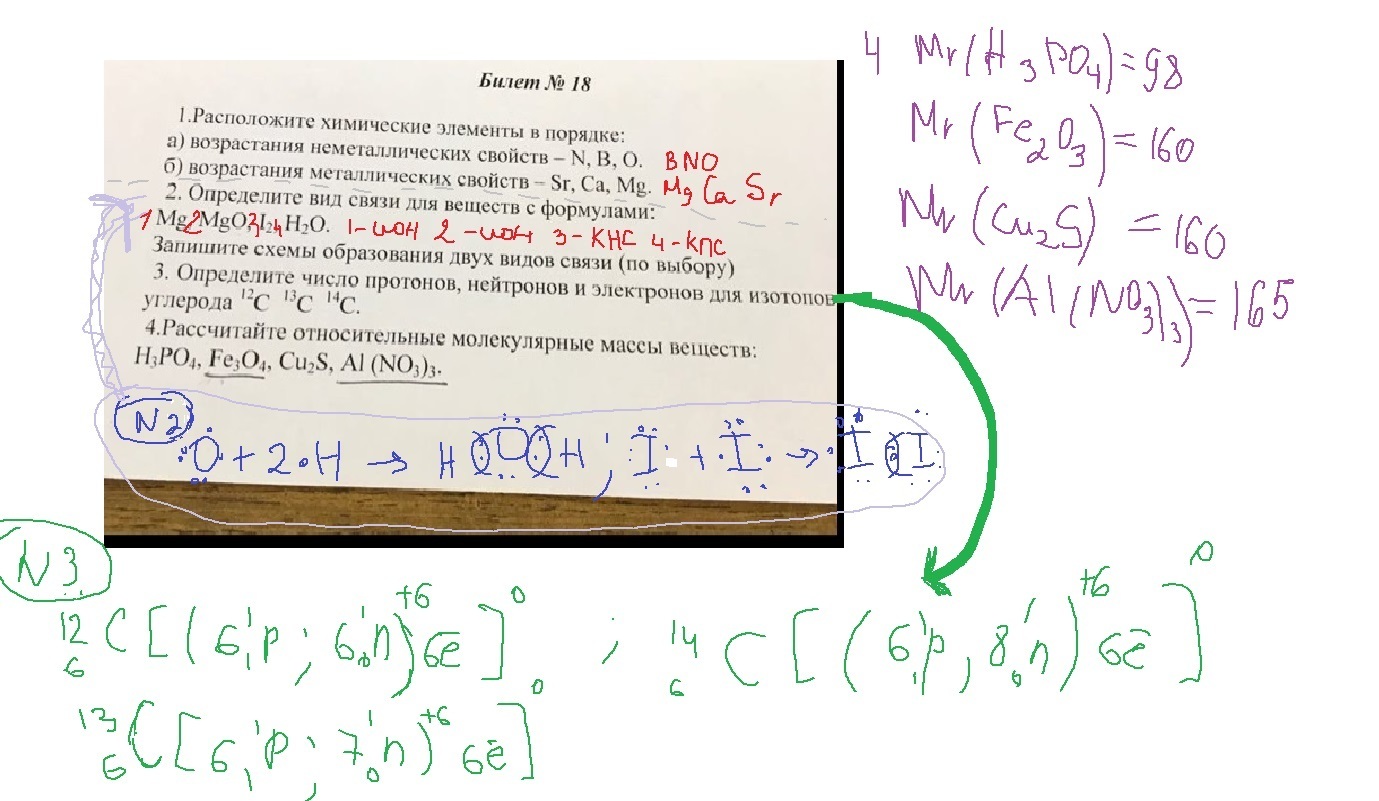 Билет № 18
1.Расположите химические элементы в порядке:
а) возрастания неметаллических свойств – N, B, O. BNO
б) возрастания металлических свойств – Sr, Ca, Mg. Mg Ca Sr
2. Определите вид связи для веществ с формулами:
1 Mg 2 MgO 3 I₂ 4 H₂O. 1-ион 2-ион 3-КНС 4-КПС
Запишите схемы образования двух видов связи (по выбору)
3. Определите число протонов, нейтронов и электронов для изотопов
углерода ¹²C ¹³C ¹⁴C.
4.Рассчитайте относительные молекулярные массы веществ:
H₃PO₄, Fe₃O₄, Cu₂S, Al (NO₃)₃.
4 Mr(H₃PO₄)=98
Mr(Fe₂O₃)=160
Mr(Cu₂S)=160
Mr(Al(NO₃)₃)=165
N2
O + 2·H → H O H ; I + I → I I
N3
¹²₆C[(6¹₁p; 6¹₀n)⁺⁶ 6ē]⁰ ; ¹⁴₆C[(6¹₁p, 8¹₀n)⁺⁶ 6ē]⁰
¹³₆C[6¹₁p; 7¹₀n)⁺⁶ 6ē]⁰